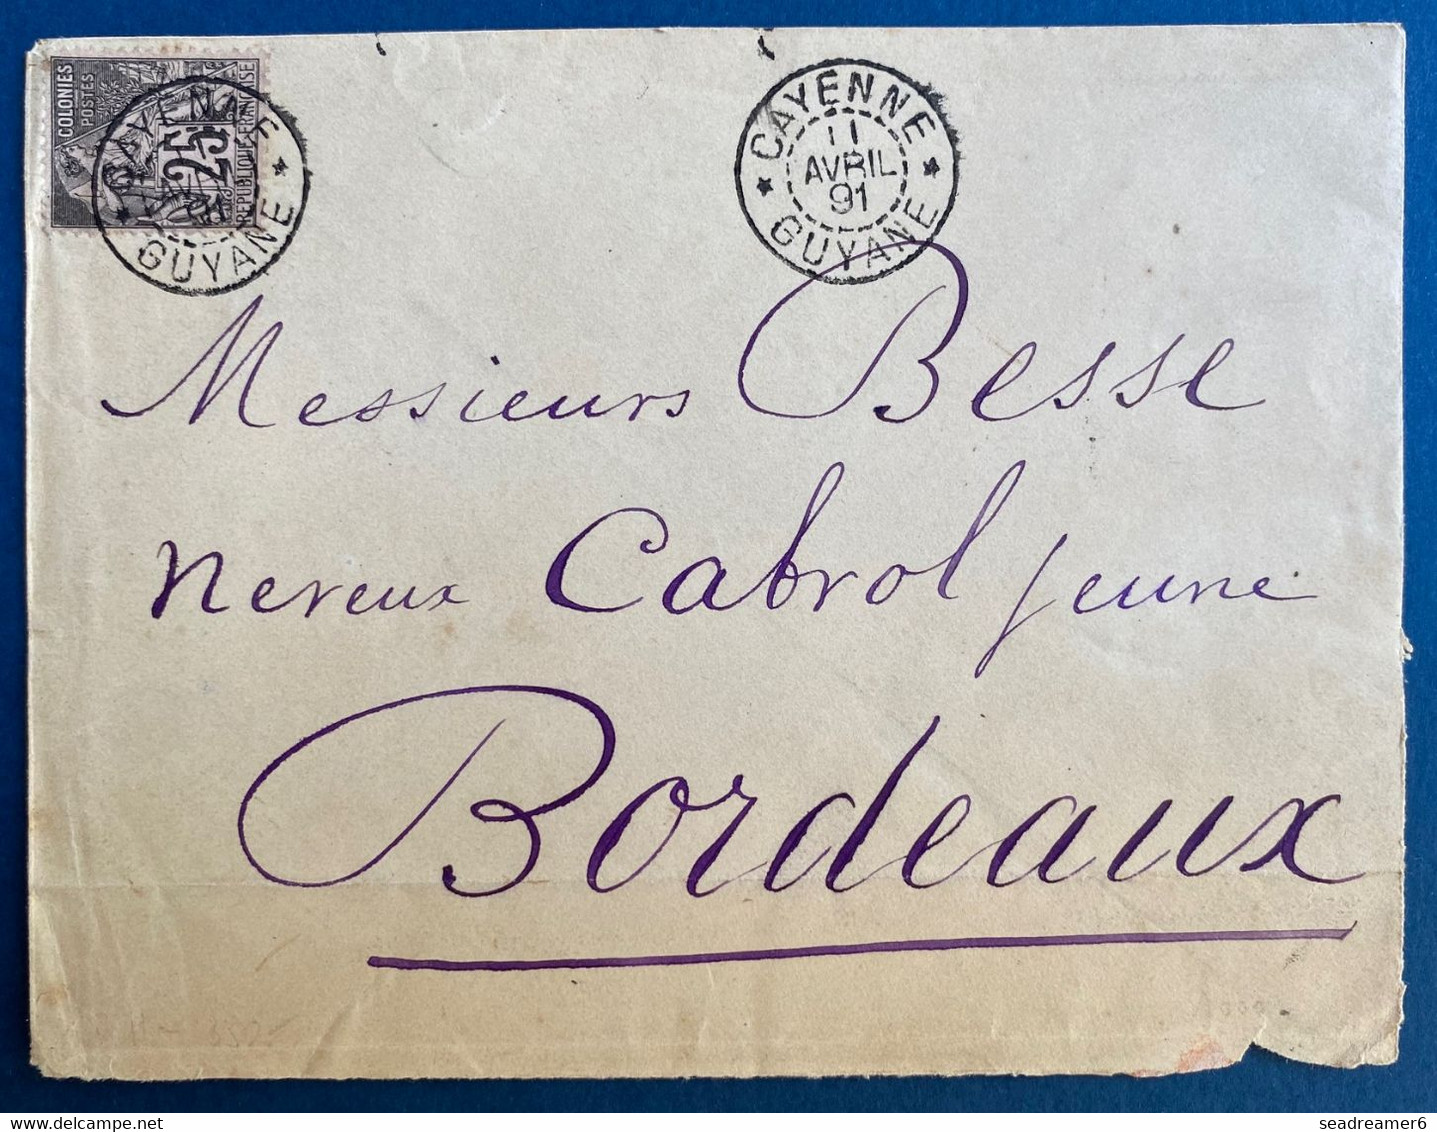 COLONIES
POSTES
25
REPUBLIQUE FRANÇAISE
CAYENNE
91
GUYANE
CAYENNE
11
AVRIL
91
GUYANE
Messieurs Besse
neveux Cabrol jeune
Bordeaux
seadreamer6
www.delcampe.net